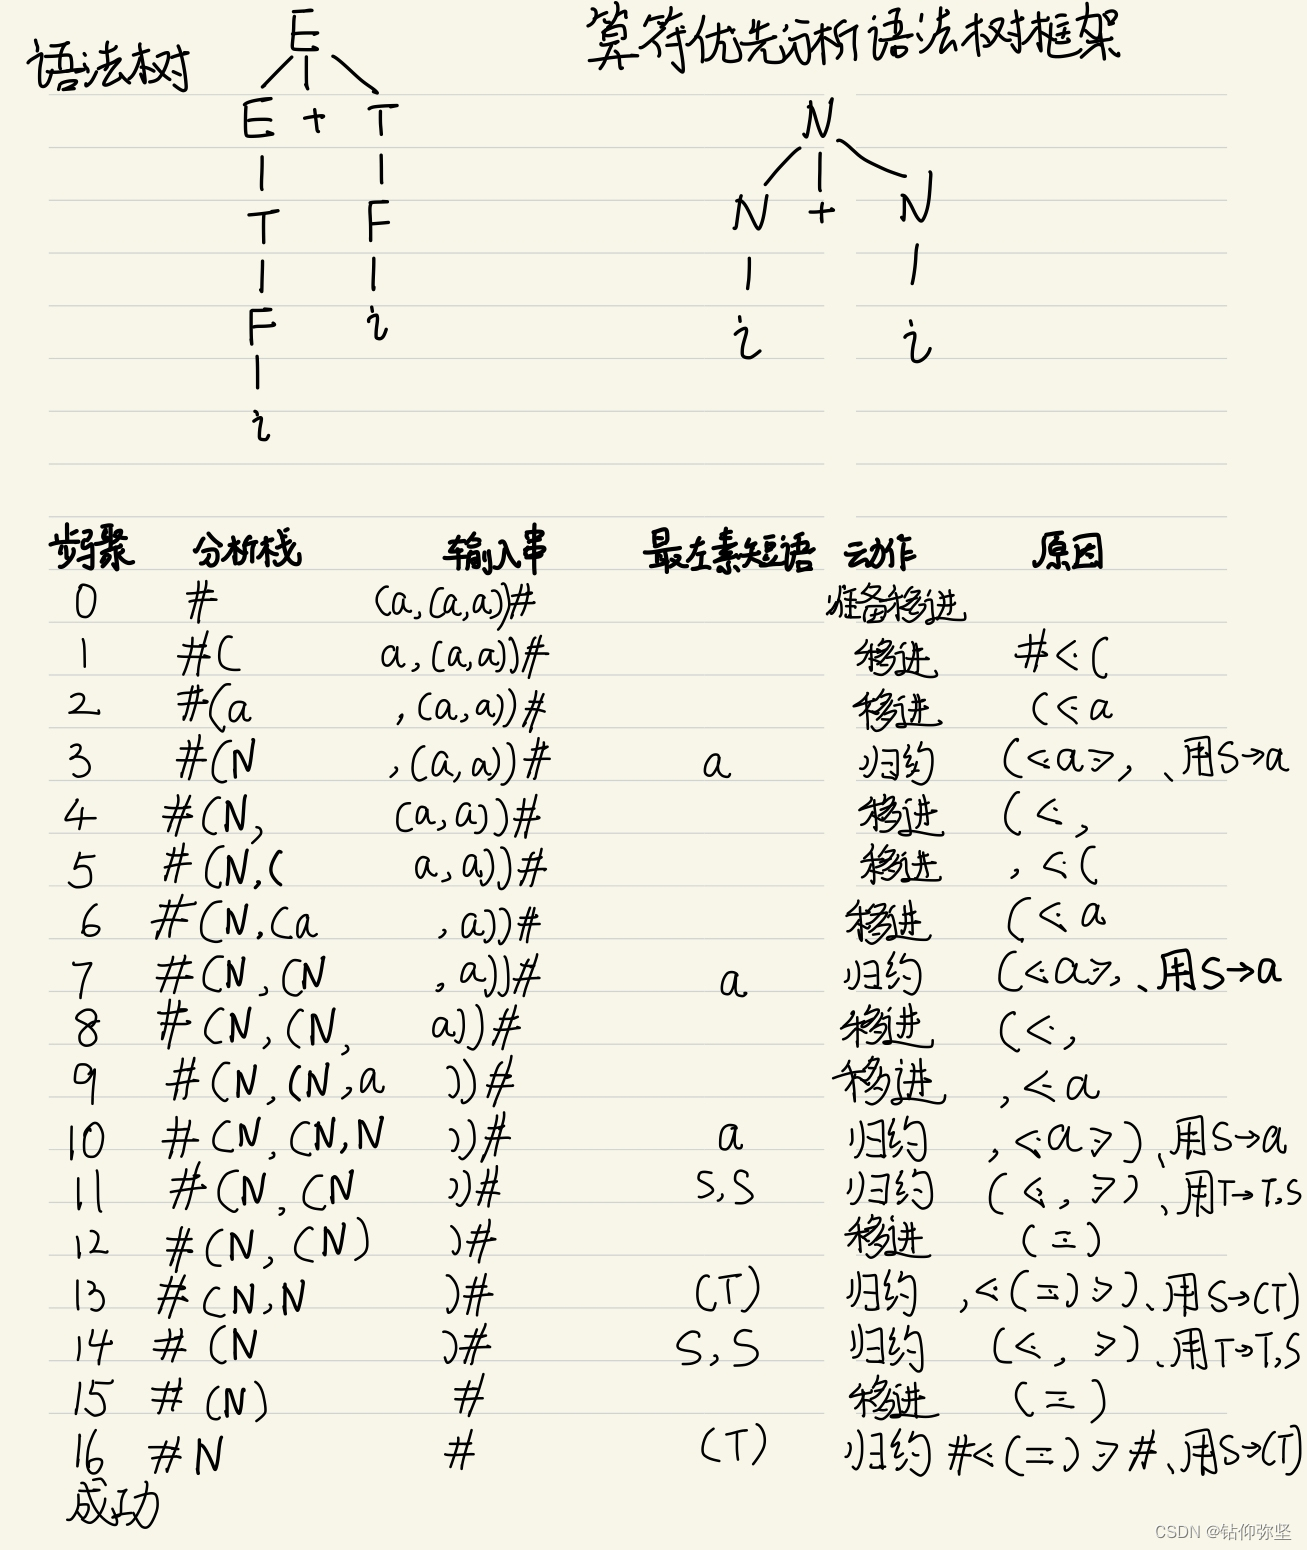 语法树
E
E + T
T F
F i
i
算符优先分析语法树框架
N
N + N
i i
步骤 分析栈 输入串 最左素短语 动作 原因
0 # (a,(a,a))# 准备移进
1 #( a,(a,a))# 移进 #⋖(
2 #(a ,(a,a))# 移进 (⋖a
3 #(N ,(a,a))# a 归约 (⋖a⋗,、用S→a
4 #(N, (a,a))# 移进 (⋖,
5 #(N,( a,a))# 移进 ,⋖(
6 #(N,(a ,a))# 移进 (⋖a
7 #(N,(N ,a))# a 归约 (⋖a⋗,、用S→a
8 #(N,(N, a))# 移进 (⋖,
9 #(N,(N,a ))# 移进 ,⋖a
10 #(N,(N,N ))# a 归约 ,⋖a⋗)、用S→a
11 #(N,(N ))# S,S 归约 (⋖,⋗)、用T→T,S
12 #(N,(N) )# 移进 (≐)
13 #(N,N )# (T) 归约 ,⋖(≐)⋗)、用S→(T)
14 #(N )# S,S 归约 (⋖,⋗)、用T→T,S
15 #(N) # 移进 (≐)
16 #N # (T) 归约 #⋖(≐)⋗#、用S→(T)
成功
CSDN @钻仰弥坚